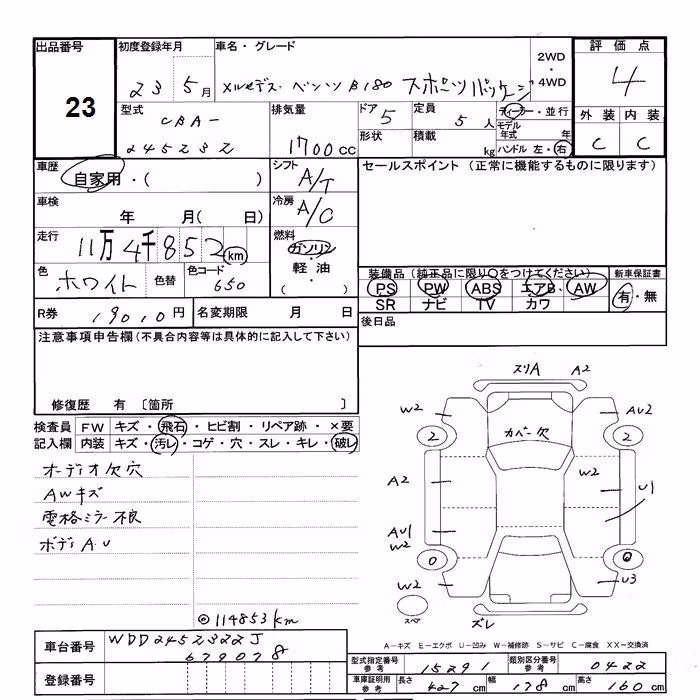 出品番号
23
初度登録年月
23 5月
車名・グレード
メルセデス・ベンツ B180 スポーツパッケージ
2WD
4WD
評価点
4
外装 内装
C C
型式
CBA-
245232
排気量
1700cc
ドア 5
形状
定員 5人
積載 kg
ディーラー・並行
モデル
年式 年
ハンドル 左・右
車歴
自家用・( )
シフト
A/T
セールスポイント (正常に機能するものに限ります)
車検
年 月( 日)
冷房
A/C
走行
11万4千852km
燃料
ガソリン
軽油
( )
色
ホワイト
色替
色コード
650
装備品 (純正品に限り○をつけてください)
PS PW ABS エアB AW
SR ナビ TV カワ
新車保証書
有・無
R券 19010円
名変期限 月 日
後日品
注意事項申告欄 (不具合内容等は具体的に記入して下さい)
修復歴 有 〔箇所 〕
検査員
記入欄
FW キズ・飛石・ヒビ割・リペア跡・×要
内装 キズ・汚レ・コゲ・穴・スレ・キレ・破レ
オーディオ欠穴
AWキズ
電格ミラー不良
ボディA.U
◎114853km
スリA A2
W2
AU2
2
2
カバー欠
A2
W2
U1
AU1
W2
0
W2
U3
スペア
ズレ
A-キズ E-エクボ U-凹み W-補修跡 S-サビ C-腐食 XX-交換済
車台番号
WDD2452322J
679078
登録番号
型式指定番号
参考
15291
類別区分番号
参考
0422
車庫証明用
参考
長さ 427cm 幅 178cm 高さ 160cm